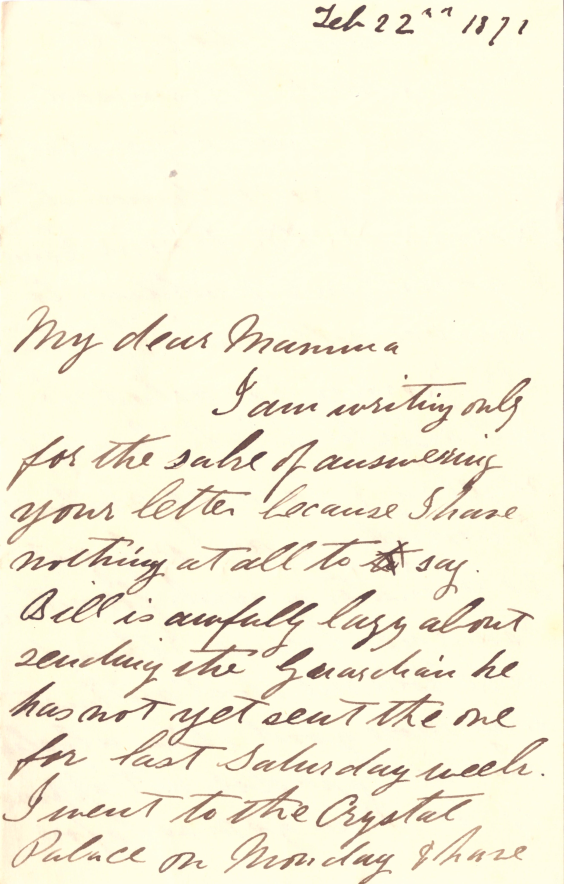 Feb 22nd 1871
My dear Mamma
I am writing only
for the sake of answering
your letter because I have
nothing at all to say.
Bill is awfully lazy about
sending the Guardian he
has not yet sent the one
for last Saturday week.
I went to the Crystal
Palace on Monday & have